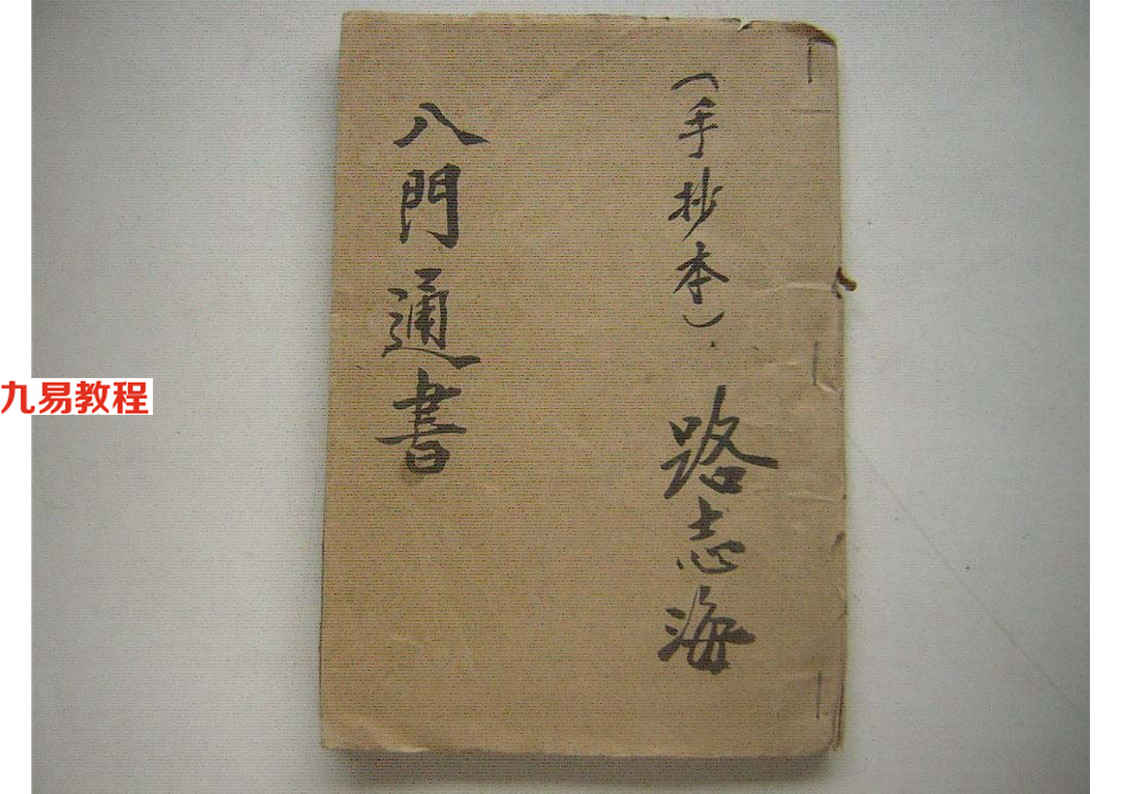 （手抄本）路志海
八門通書
九易教程